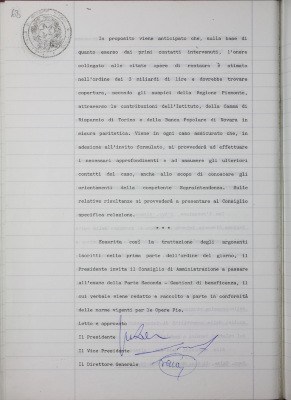 In proposito viene anticipato che, sulla base di
quanto emerso dai primi contatti intervenuti, l'onere
collegato alle citate opere di restauro è stimato
nell'ordine dei 2 miliardi di lire e dovrebbe trovare
copertura, secondo gli auspici della Regione Piemonte,
attraverso le contribuzioni dell'Istituto, della Cassa di
Risparmio di Torino e della Banca Popolare di Novara in
misura paritetica. Viene in ogni caso assicurato che, in
adesione all'invito formulato, si provvederà ad effettuare
i necessari approfondimenti e ad assumere gli ulteriori
contatti del caso, anche allo scopo di conoscere gli
orientamenti della competente Soprintendenza. Sulle
relative risultanze si provvederà a presentare al Consiglio
specifica relazione.
* * *
Esaurita così la trattazione degli argomenti
iscritti nella prima parte dell'ordine del giorno, il
Presidente invita il Consiglio di Amministrazione a passare
all'esame della Parte Seconda - Gestioni di beneficenza, il
cui verbale viene redatto e raccolto a parte in conformità
delle norme vigenti per le Opere Pie.
Letto e approvato
Il Presidente
Il Vice Presidente
Il Direttore Generale